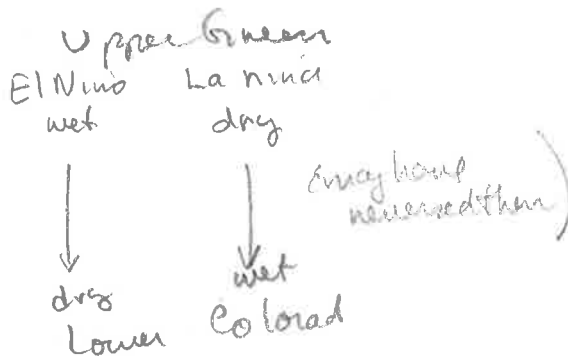 Upper Green
El Nino La nina
wet dry
(may have
reversed them)
dry wet
Lower Colorad